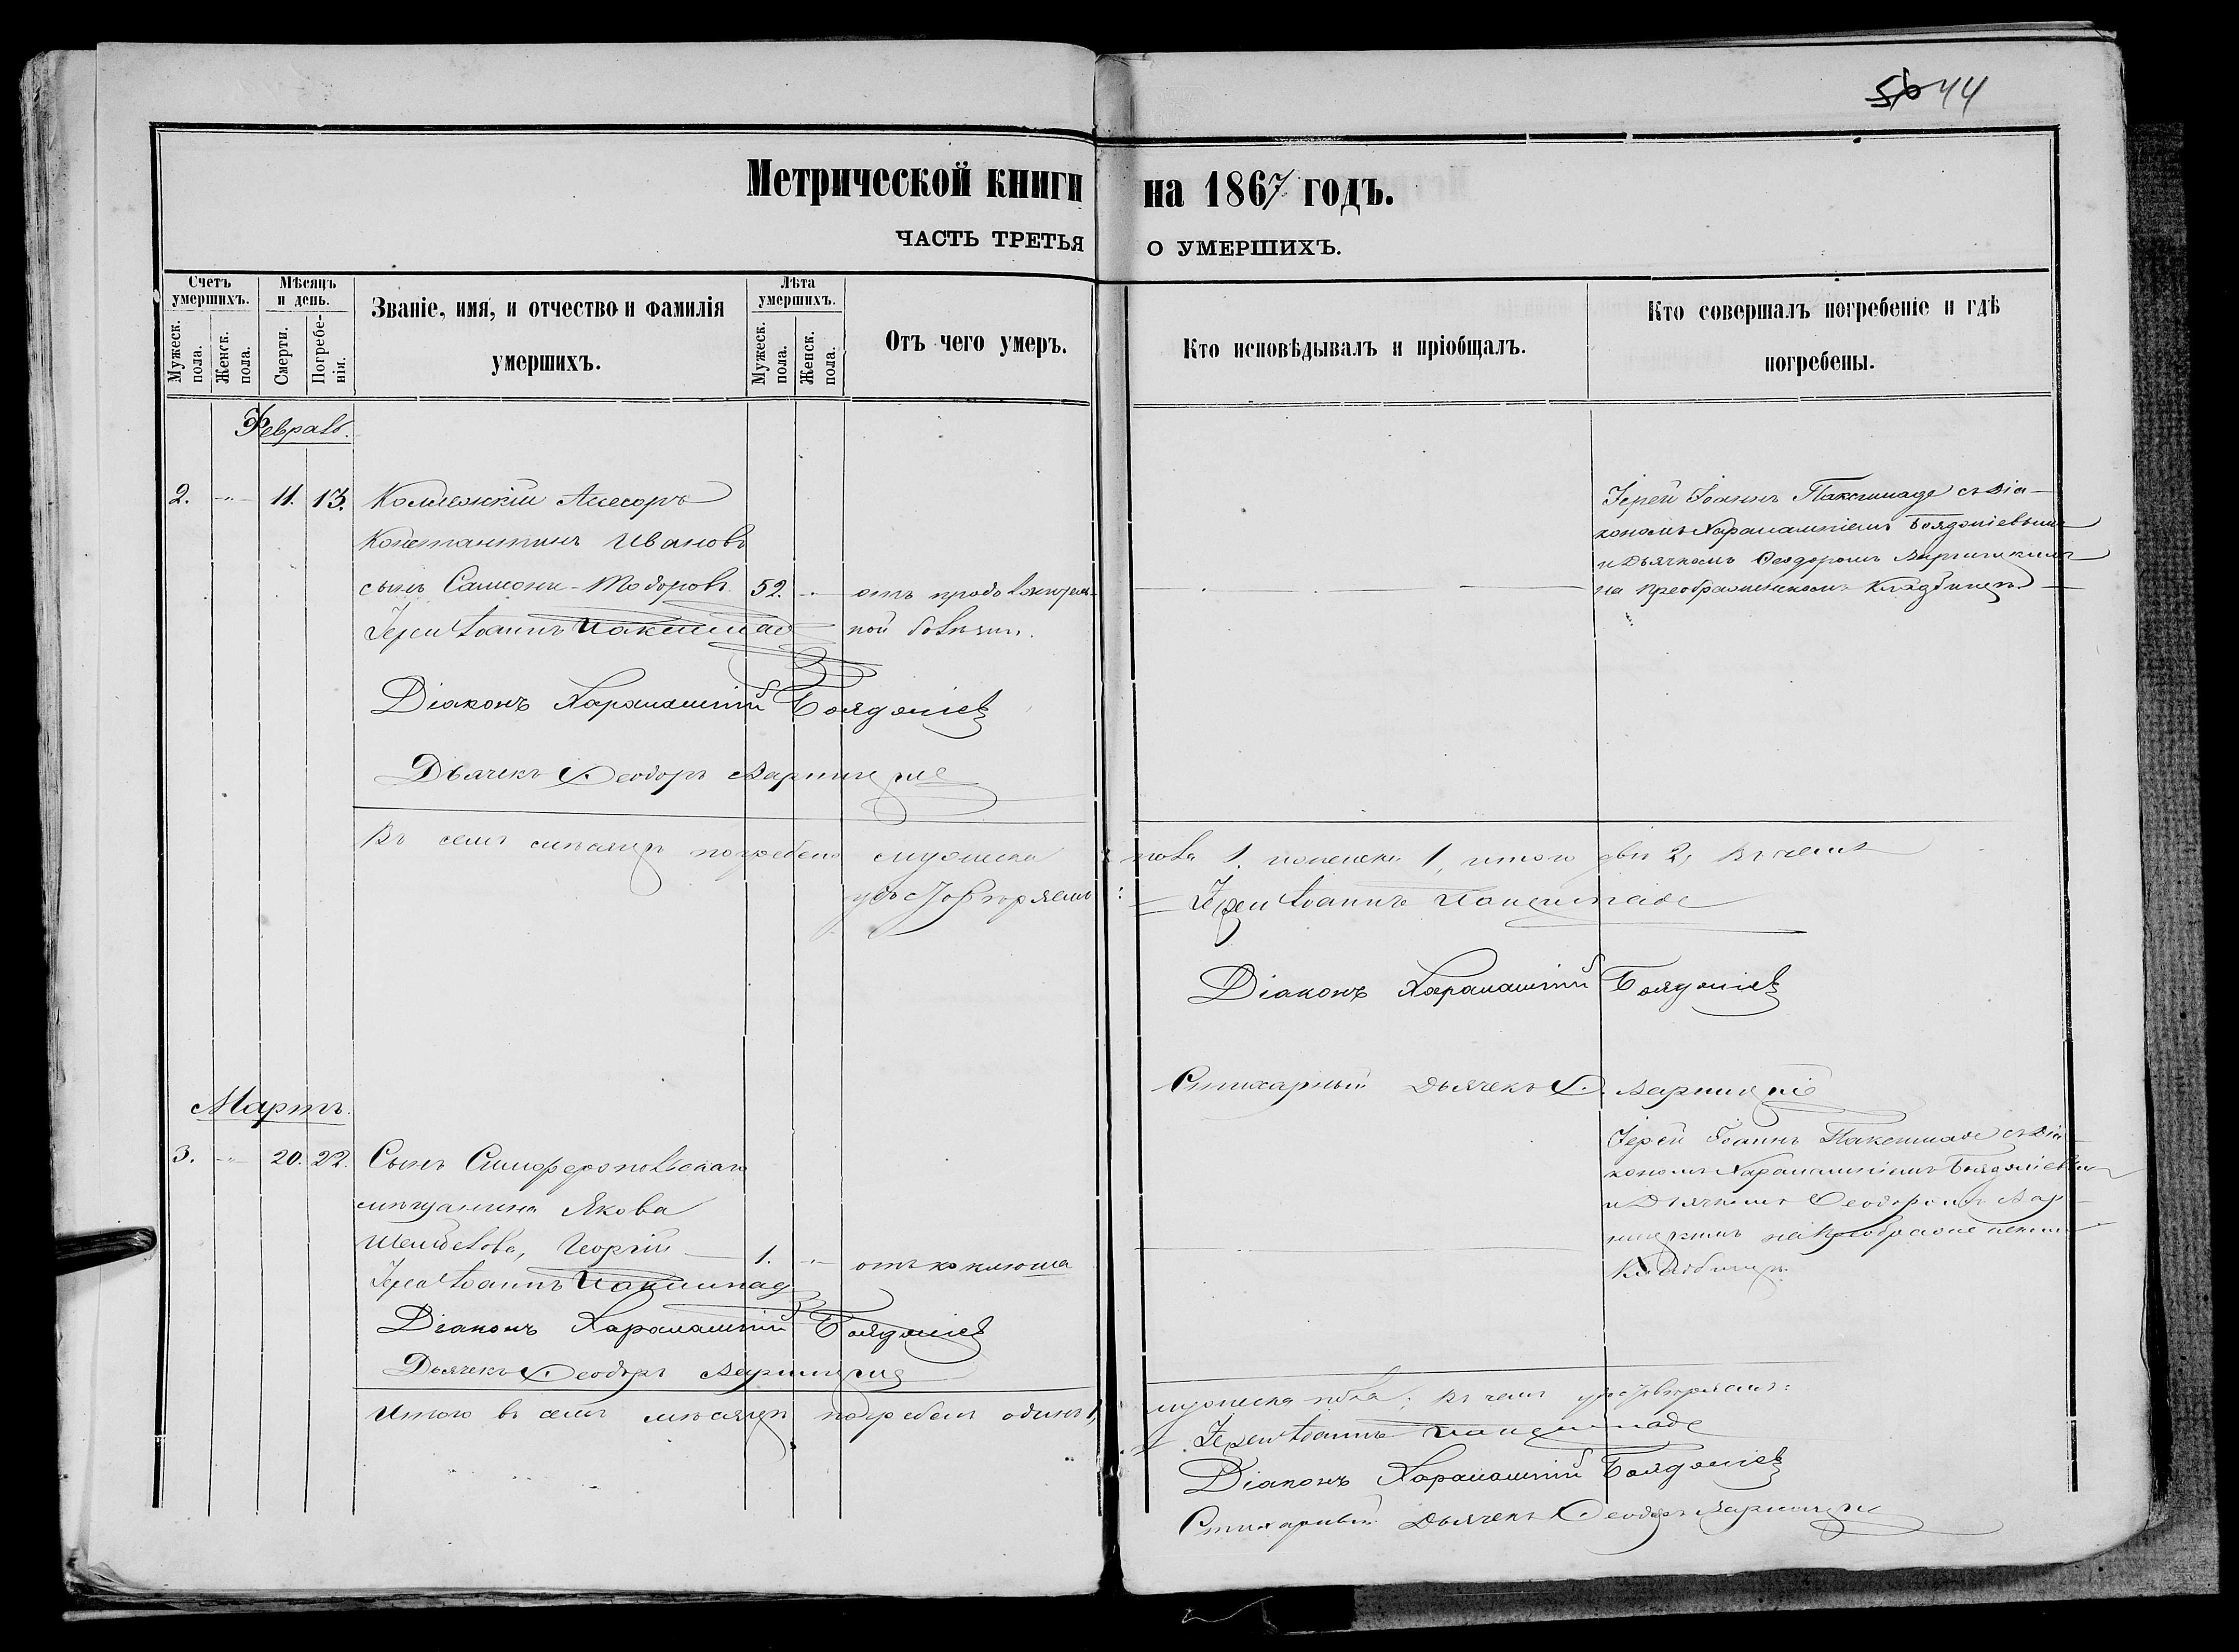 56 44
Метрической книги на 1867 годъ.
ЧАСТЬ ТРЕТЬЯ О УМЕРШИХЪ.
Счетъ умершихъ.
Мужеск. пола.
Женск. пола.
Мѣсяцъ и день.
Смерти.
Погребенія.
Званіе, имя, и отчество и фамилія
умершихъ.
Лѣта умершихъ.
Мужеск. пола.
Женск. пола.
Отъ чего умеръ.
Кто исповѣдывалъ и пріобщалъ.
Кто совершалъ погребеніе и гдѣ
погребены.
Февраль.
2. -„- 11. 13. Коллежскій Ассесоръ
Константинъ Ивановъ
сынъ Самсони-Тодоровъ 52. -„- отъ продолжитель-
ной болѣзни.
Іерей Іоаннъ Паксимаде
Діаконъ Харалампій Бояджіевъ
Дьячекъ Ѳеодоръ
Іерей Іоаннъ Паксимаде съ діа-
кономъ Харалампіемъ Бояджіевымъ
и Дьячкомъ Ѳеодоромъ
на преображенскомъ Кладбищѣ
Въ семъ мѣсяцѣ погребено мужеска пола 1. и женска 1, итого два 2, Въ чемъ
удостовѣряемъ:
Іерей Іоаннъ Паксимаде
Діаконъ Харалампій Бояджіевъ
Стихарный Дьячекъ Ѳ.
Мартъ.
3. -„- 20. 22. Сынъ Симферопольскаго
мѣщанина Якова
Георгій 1. -„- отъ коклюша
Іерей Іоаннъ Паксимаде
Діаконъ Харалампій Бояджіевъ
Дьячекъ Ѳеодоръ
Іерей Іоаннъ Паксимаде съ діа-
кономъ Харалампіемъ Бояджіевымъ
и Дьячкомъ Ѳеодоромъ
на Преображенскомъ
Кладбищѣ
Итого въ семъ мѣсяцѣ погребенъ одинъ 1, мужеска пола; Въ чемъ удостовѣряемъ:
Іерей Іоаннъ Паксимаде
Діаконъ Харалампій Бояджіевъ
Стихарный Дьячекъ Ѳеодоръ